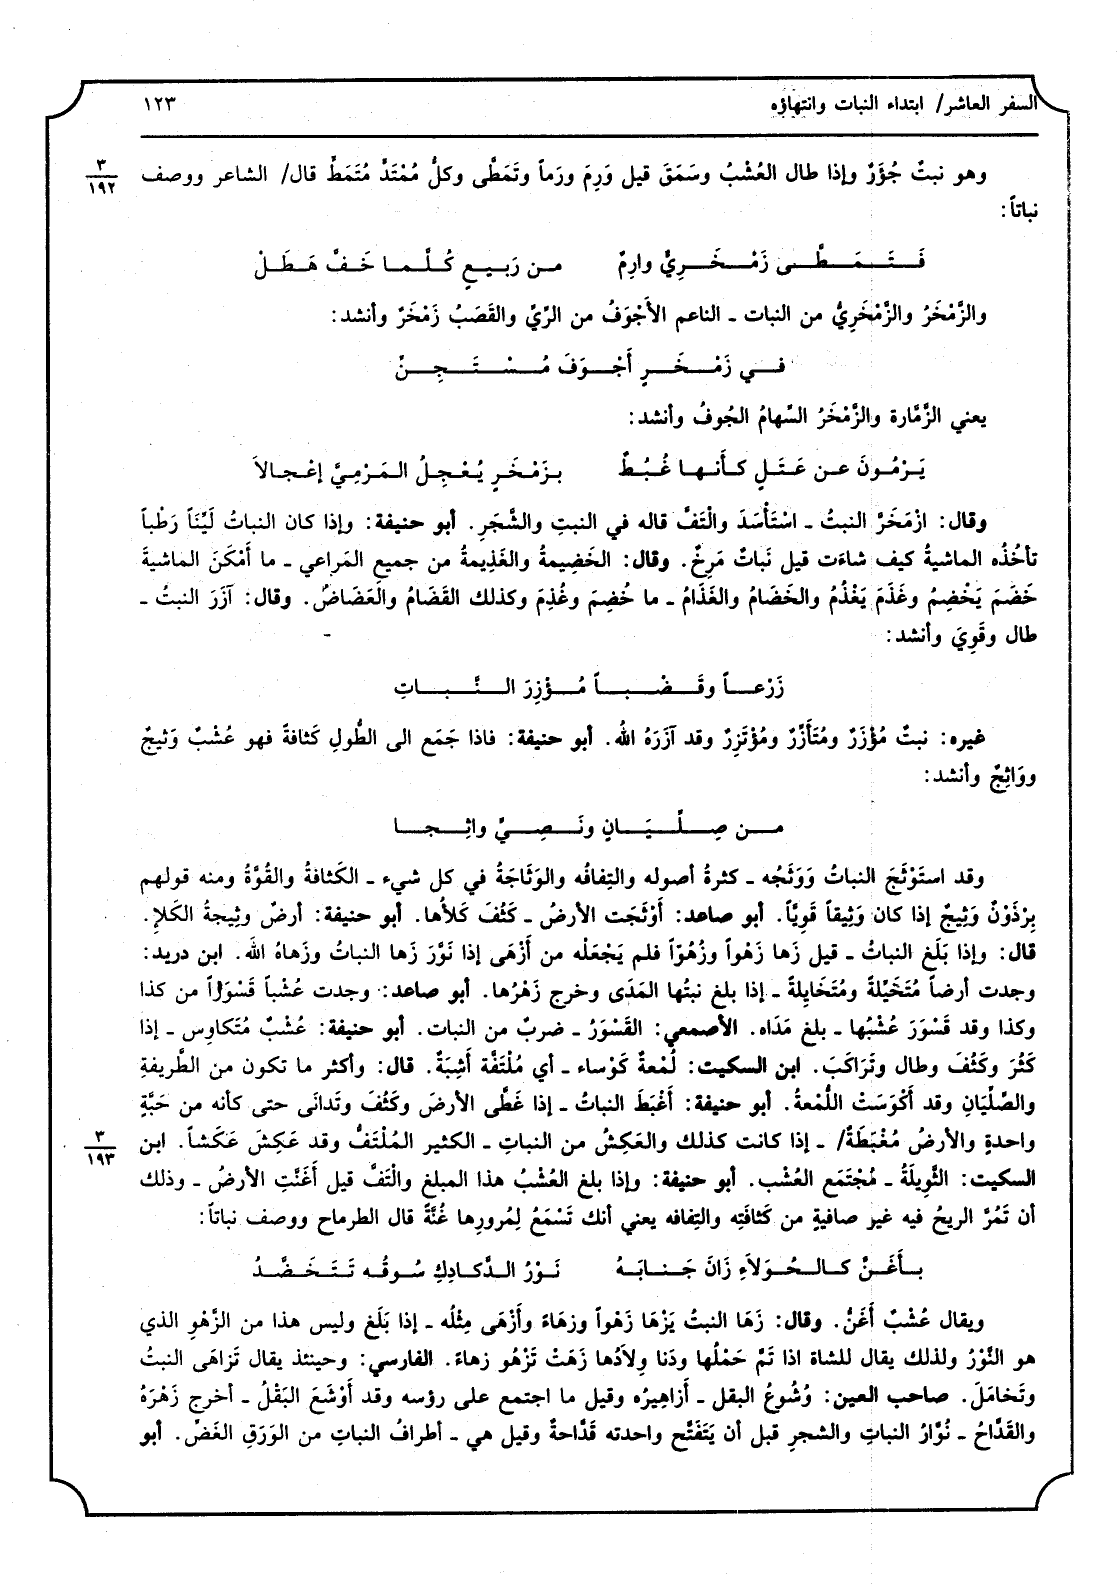 السفر العاشر/ ابتداء النبات وانتهاؤه
١٢٣
وهو نبتٌ جُؤَرٌ وإذا طال العُشْبُ وسَمَقَ قيل وَرِمَ ورَماً وتَمَطَّى وكلُّ مُمْتَدٍّ مُتَمَطٍّ قال/ الشاعر ووصف
٣
١٩٢
نباتاً:
فَتَمَطَّى زَمْخَرِيٌّ وارِمٌ من رَبيعٍ كُلَّما خَفَّ هَطَلْ
والزَّمْخَرُ والزَّمْخَرِيُّ من النبات ـ الناعم الأَجْوَفُ من الرِّيِّ والقَصَبُ زَمْخَرٌ وأنشد:
في زَمْخَرٍ أَجْوَفَ مُسْتَجِنٌ
يعني الزَّمَّارة والزَّمْخَرُ السِّهامُ الجُوفُ وأنشد:
يَرْمُونَ عن عَتَلٍ كأنها غُبُطٌ بزَمْخَرٍ يُعْجِلُ المَرْمِيَّ إعْجالاَ
وقال: ازْمَخَرَّ النبتُ ـ اسْتَأْسَدَ والْتَفَّ قاله في النبتِ والشَّجَرِ. أبو حنيفة: وإذا كان النباتُ لَيِّنَاً رَطْباً
تأخُذُه الماشيةُ كيف شاءَت قيل نَباتٌ مَرِخٌ. وقال: الخَضِيمةُ والغَذِيمةُ من جميع المَراعي ـ ما أَمْكَنَ الماشيةَ
خَضَمَ يَخْضِمُ وغَذَمَ يَغْذُمُ والخَضَامُ والغَذَامُ ـ ما خُضِمَ وغُذِمَ وكذلك القَضَامُ والعَضَاضُ. وقال: آزَرَ النبتُ ـ
طال وقَوِيَ وأنشد:
زَرْعاً وقَضْباً مُؤْزِرَ النَّباتِ
غيره: نبتٌ مُؤْزَرٌ ومُتَأَزِّرٌ ومُؤْتَزِرٌ وقد آزَرَهُ اللهُ. أبو حنيفة: فاذا جَمَع الى الطُّولِ كَثافةً فهو عُشْبٌ وَثيجٌ
ووَاثِجٌ وأنشد:
من صِلِّيَانٍ ونَصِيٍّ واثِجا
وقد استَوْثَجَ النباتُ وَوَثَجُه ـ كثرةُ أصوله والتِفافُه والوَثَاجَةُ في كل شيء ـ الكَثافةُ والقُوَّةُ ومنه قولهم
بِرْذَوْنٌ وَثِيجٌ إذا كان وَثِيقاً قَوِيًّا. أبو صاعد: أَوْثَجَت الأرضُ ـ كَثُفَ كَلأُها. أبو حنيفة: أرضٌ وثِيجةُ الكَلإِ.
قال: وإذا بَلَغ النباتُ ـ قيل زَها زَهْواً وزُهُوّاً فلم يَجْعَلْه من أَزْهَى إذا نَوَّرَ زَها النباتُ وزَهاهُ اللهُ. ابن دريد:
وجدت أرضاً مُتَخَيِّلةً ومُتَخايِلةً ـ إذا بلغ نبتُها المَدَى وخرج زَهْرُها. أبو صاعد: وجدت عُشْباً قَسْوَراً من كذا
وكذا وقد قَسْوَرَ عُشْبُها ـ بلغ مَدَاه. الأصمعي: القَسْوَرُ ـ ضربٌ من النبات. أبو حنيفة: عُشْبٌ مُتَكاوِس ـ إذا
كَثُرَ وكَثُفَ وطال وتَرَاكَبَ. ابن السكيت: لُمْعةٌ كَوْساء ـ أي مُلْتَفَّة أَشِبَةٌ. قال: وأكثر ما تكون من الطَّريفةِ
والصِّلِّيَانِ وقد أكْوَسَتْ اللُّمْعةُ. أبو حنيفة: أَغْبَطَ النباتُ ـ إذا غَطَّى الأرضَ وكَثُفَ وتَدانَى حتى كأنه من حَبَّةٍ
واحدةٍ والأرضُ مُغْبَطَةٌ/ ـ إذا كانت كذلك والعَكِشُ من النباتِ ـ الكثير المُلْتَفُّ وقد عَكِشَ عَكَشاً. ابن
٣
١٩٣
السكيت: الثَّوِيلَةُ ـ مُجْتَمَع العُشْب. أبو حنيفة: وإذا بلغ العُشْبُ هذا المبلغ والْتَفَّ قيل أَغَنَّتِ الأرضُ ـ وذلك
أن تَمُرَّ الريحُ فيه غير صافيةٍ من كَثافَتِه والتِفافه يعني أنك تَسْمَعُ لِمُرورِها غُنَّةً قال الطرماح ووصف نباتاً:
بأَغَنَّ كالحُوَلاَءِ زَانَ جَنابَهُ نَوْرُ الدَّكادِكِ سُوقُه تَتَخَضَّدُ
ويقال عُشْبٌ أَغَنُّ. وقال: زَهَا النبتُ يَزْهَا زَهْواً وزهاءً وأَزْهَى مِثْلُه ـ إذا بَلَغ وليس هذا من الزَّهْوِ الذي
هو النَّوْرُ ولذلك يقال للشاة اذا تَمَّ حَمْلُها ودَنا وِلاَدُها زَهَتْ تَزْهُو زهاءً. الفارسي: وحينئذ يقال تَزاهَى النبتُ
وتَخامَلَ. صاحب العين: وُشُوعُ البقل ـ أَزاهِيرُه وقيل ما اجتمع على رؤسه وقد أَوْشَعَ البَقْلُ ـ أخرج زَهْرَهُ
والقَدَّاحُ ـ نُوَّارُ النباتِ والشجرِ قبل أن يَتَفَتَّح واحدته قَدَّاحةٌ وقيل هي ـ أطرافُ النباتِ من الوَرَقِ الغَضِّ. أبو